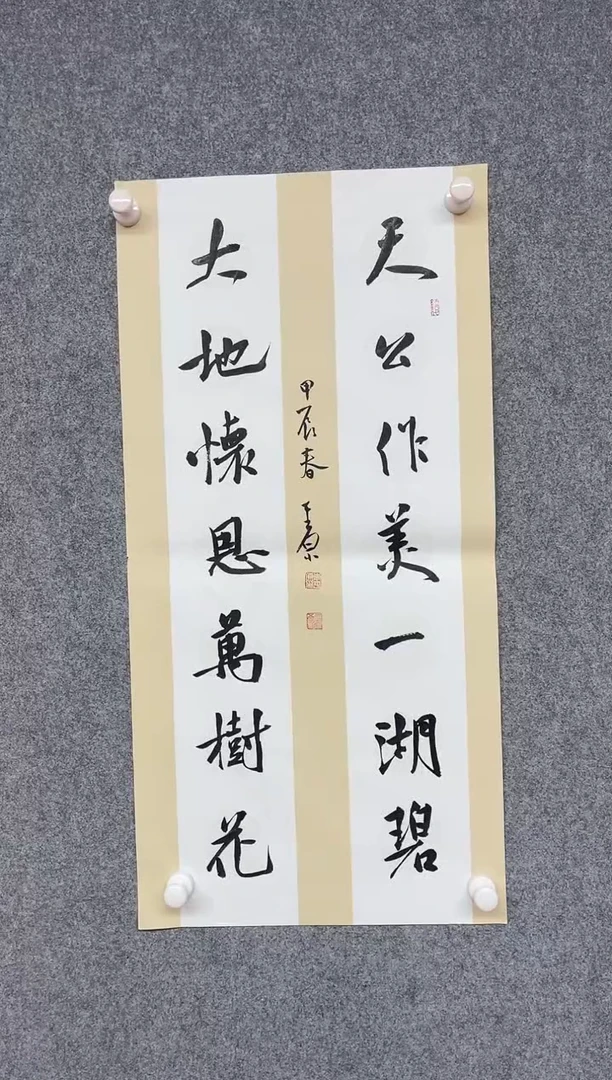 天公作美一湖碧
大地懷恩萬樹花
甲辰春